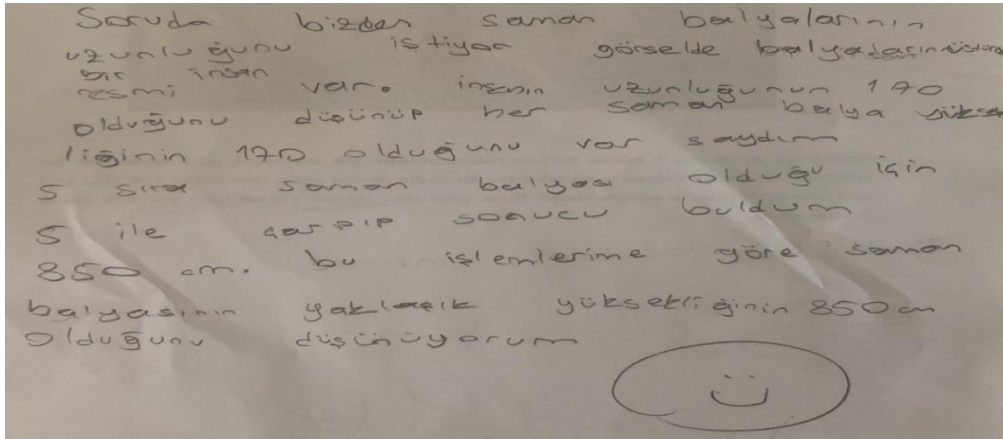 Soruda bizden saman balyalarının
uzunluğunu istiyor görselde balyaların üstünde
bir insan
resmi var. insanın uzunluğunun 170
olduğunu düşünüp her saman balya yüksek
liğinin 170 olduğunu var saydım
5 sıra saman balyası olduğu için
5 ile çarpıp sonucu buldum
850 cm. bu işlemlerime göre saman
balyasının yaklaşık yüksekliğinin 850 cm
olduğunu düşünüyorum